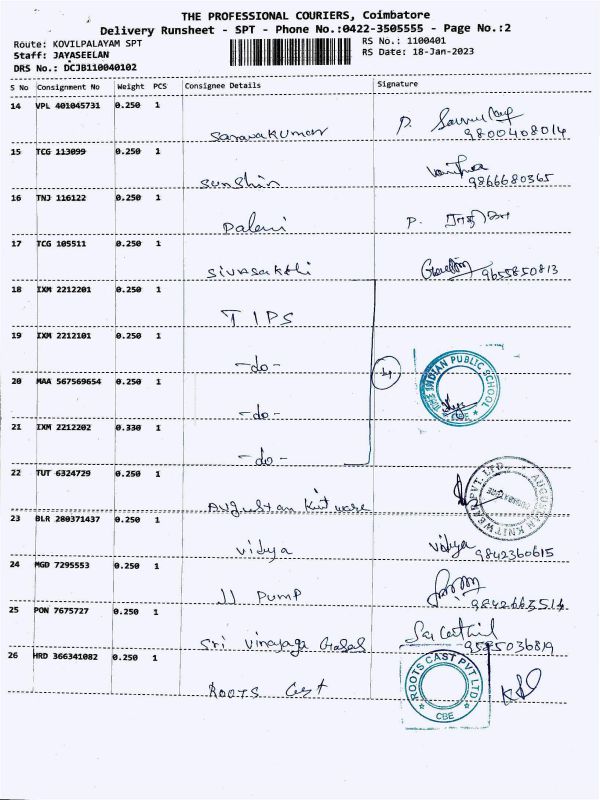 THE PROFESSIONAL COURIERS, Coimbatore
Delivery Runsheet - SPT - Phone No.:0422-3505555 - Page No.:2
Route: KOVILPALAYAM SPT
Staff: JAYASEELAN
DRS No.: DCJB110040102
RS No.: 1100401
RS Date: 18-Jan-2023
S No Consignment No Weight PCS Consignee Details Signature
14 VPL 401045731 0.250 1
Saravakumar P. 9800408014
15 TCG 113099 0.250 1
Sunshin 9866680365
16 TNJ 116122 0.250 1
Palani P.
17 TCG 105511 0.250 1
Sivasakthi 9655850813
18 IXM 2212201 0.250 1
TIPS
19 IXM 2212101 0.250 1
-do-
4
THE INDIAN PUBLIC SCHOOL
CBE
20 MAA 567569654 0.250 1
-do-
21 IXM 2212202 0.330 1
-do-
22 TUT 6324729 0.250 1
Augustan Knitware
AUGUSTAN KNITWEAR PVT. LTD.
23 BLR 280371437 0.250 1
Vidya Vidya 9842360615
24 MGD 7295553 0.250 1
JJ PUMP 9842663514
25 PON 7675727 0.250 1
Sri Vinayaga 9585036819
26 HRD 366341082 0.250 1
ROOTS Cast
ROOTS CAST PVT LTD
CBE